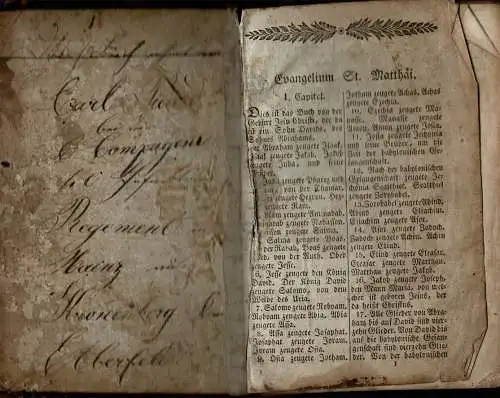 Carl
E Compagnie
Regement
Mainz
Kronenberg
E Elberfeld
Evangelium St. Matthäi.
1. Capitel.
Dies ist das Buch von der
Geburt Jesu Christi, der da
ist ein Sohn Davids, des
Sohns Abrahams.
Abraham zeugete Isaak.
Isaak zeugete Jakob. Jakob
zeugete Juda, und seine
Juda zeugete Pharez und
von der Thamar.
zeugete Hezron. Hez-
zeugete Ram.
Ram zeugete Aminadab.
zeugete Nahasson.
zeugete Salma.
Salma zeugete Boas,
der Rahab. Boas zeugete
von der Ruth. Obed
zeugete Jesse.
6. Jesse zeugete den König
David. Der König David
zeugete Salomo, von dem
Weibe des Uria.
7. Salomo zeugete Roboam.
Roboam zeugete Abia. Abia
zeugete Assa.
8. Assa zeugete Josaphat.
Josaphat zeugete Joram.
Joram zeugete Osia.
9. Osia zeugete Jotham.
Jotham zeugete Achas. Achas
zeugete Ezechia.
10. Ezechia zeugete Ma-
nasse. Manasse zeugete
Amon. Amon zeugete Josia.
11. Josia zeugete Jechonia
und seine Brüder, um die
Zeit der babylonischen Ge-
fangenschaft.
12. Nach der babylonischen
Gefangenschaft zeugete Je-
chonia Sealthiel. Sealthiel
zeugete Zorobabel.
13. Zorobabel zeugete Abiud.
Abiud zeugete Eliachim.
Eliachim zeugete Asor.
14. Asor zeugete Zadoch.
Zadoch zeugete Achin. Achin
zeugete Eliud.
15. Eliud zeugete Eleasar.
Eleasar zeugete Matthan.
Matthan zeugete Jakob.
16. Jakob zeugete Joseph,
den Mann Mariä, von wel-
cher ist geboren Jesus, der
da heißt Christus.
17. Alle Glieder von Abra-
ham bis auf David sind vier-
zehn Glieder. Von David bis
auf die babylonische Gefan-
genschaft sind vierzehn Glie-
der. Von der babylonischen
1